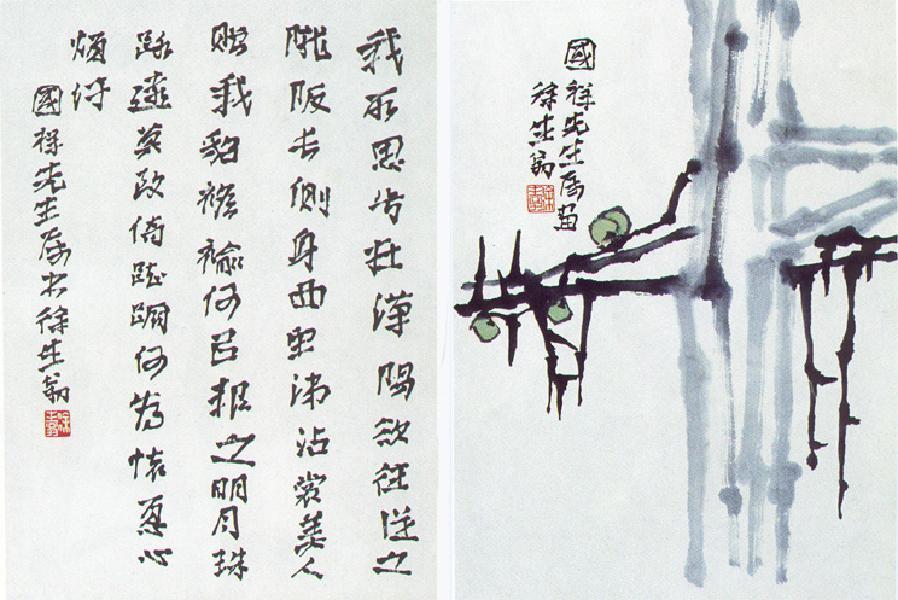 我所思兮在漢陽欲往從之
隴阪長側身西望涕沾裳美人
贈我貂襜褕何㠯報之明月珠
路遠莫致倚踟躕何為懷憂心
煩紆
國祥先生属书徐生翁
國祥先生属畫
徐生翁